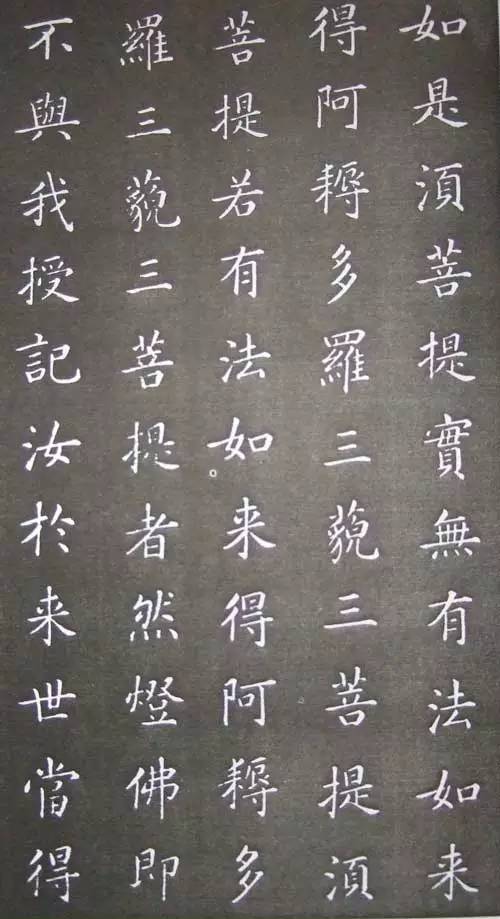 如是湏菩提實無有法如来
得阿耨多羅三藐三菩提湏
菩提若有法如来得阿耨多
羅三藐三菩提者然燈佛即
不與我授記汝於来世當得